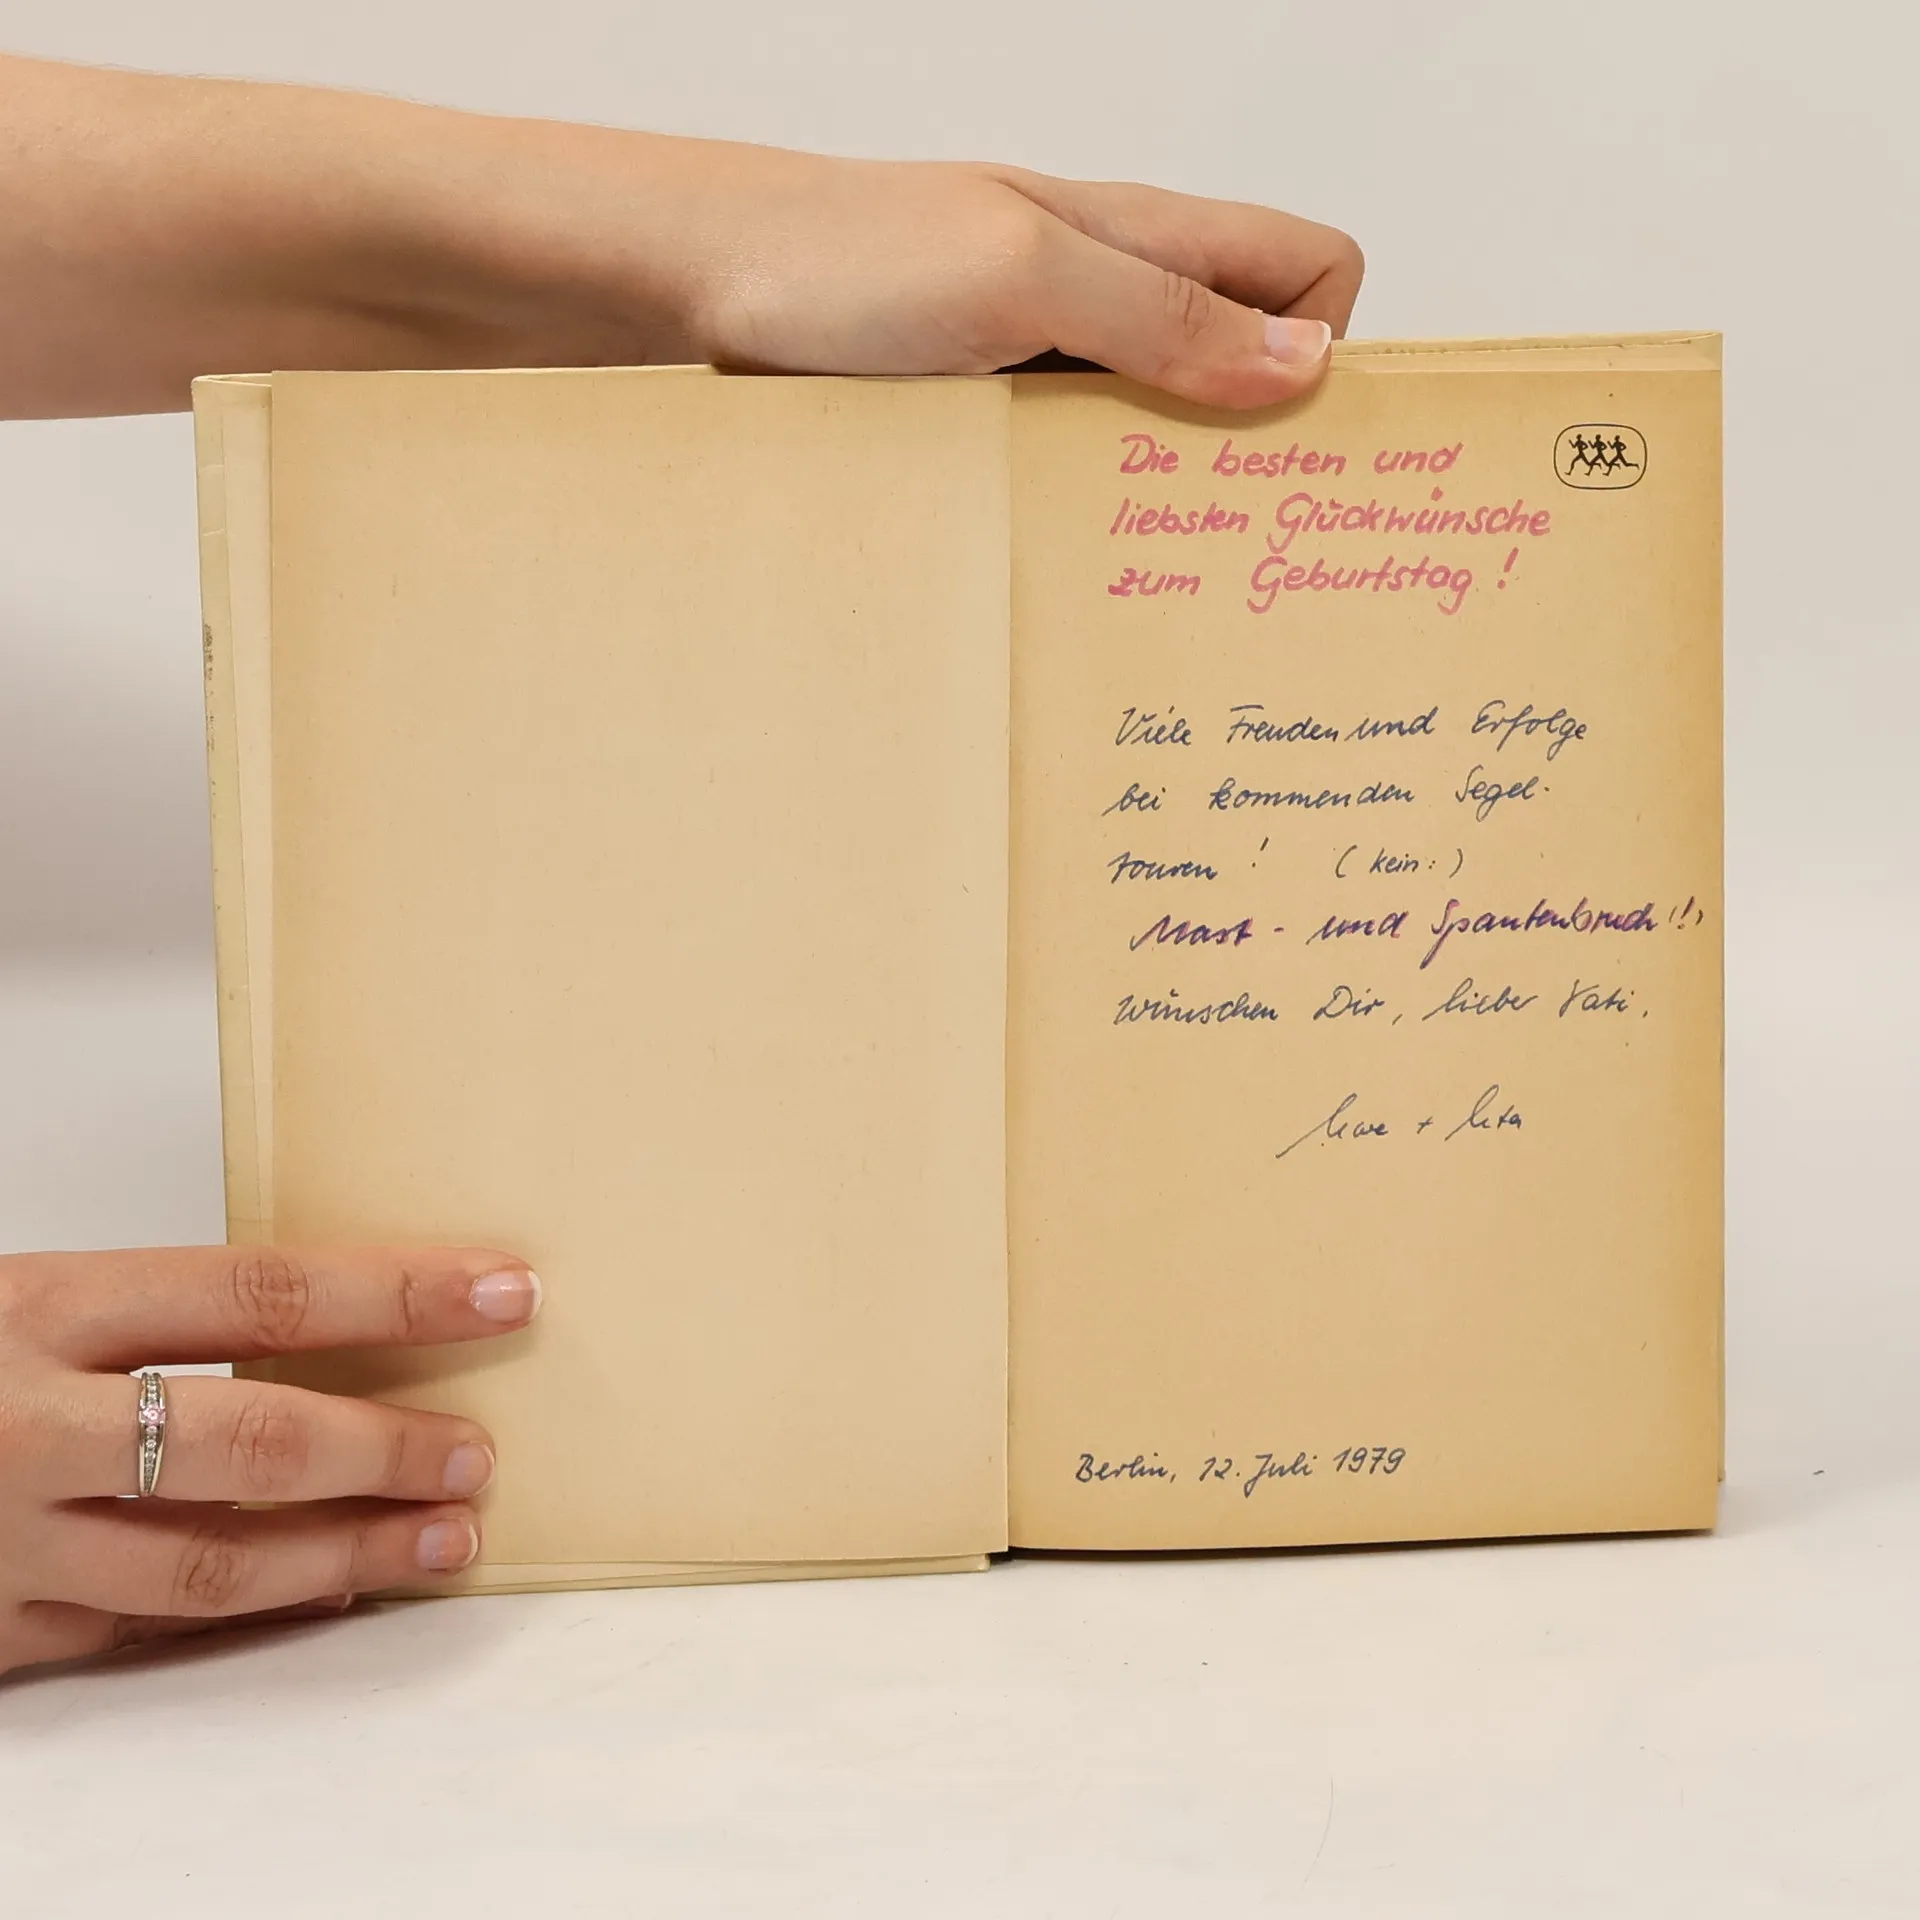 Die besten und
liebsten Glückwünsche
zum Geburtstag !
Viele Freuden und Erfolge
bei kommenden Segel-
touren ! ( kein : )
Mast - und Spantenbruch !!,
wünschen Dir, lieber Vati,
Uwe +
Berlin, 12. Juli 1979